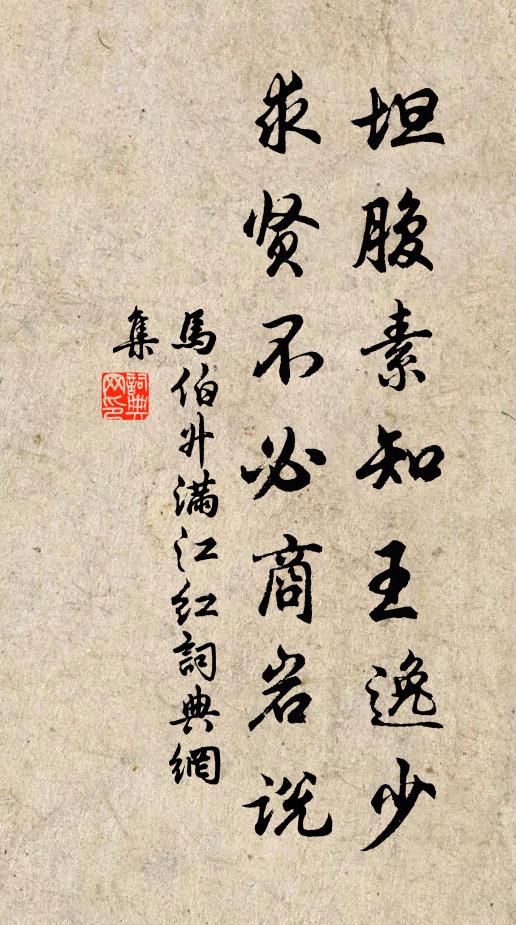 坦腹素知王逸少
求贤不必商岩说
馬伯升滿江紅詞典網
集
詞典
网印